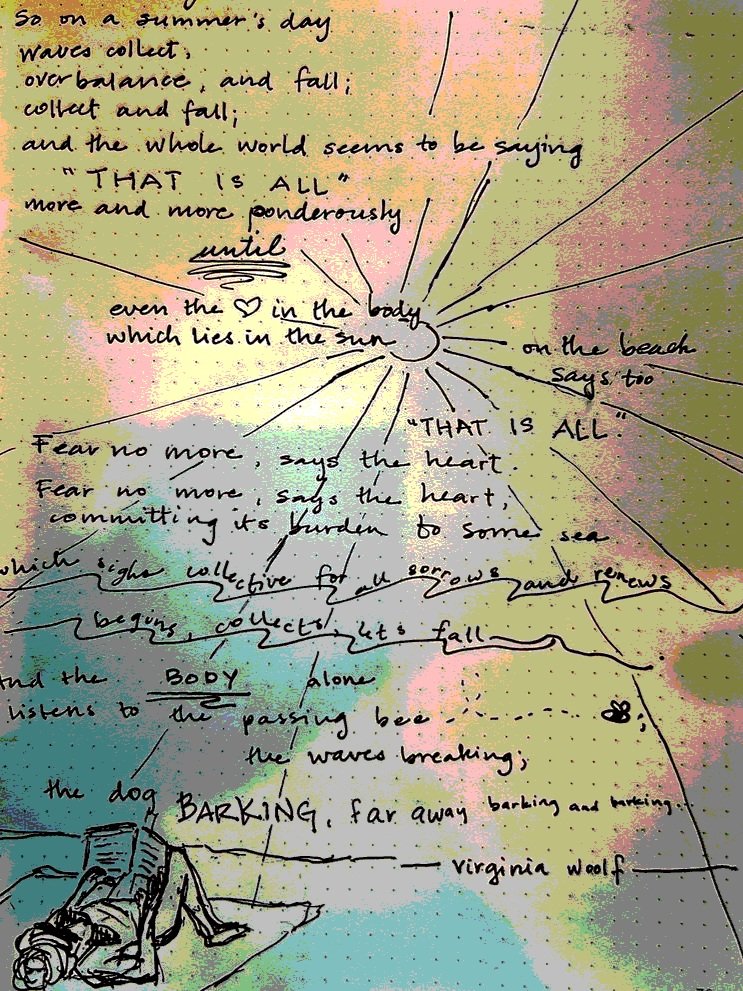 So on a summer's day
waves collect,
overbalance, and fall;
collect and fall;
and the whole world seems to be saying
"THAT IS ALL"
more and more ponderously
until
even the ♡ in the body
which lies in the sun
on the beach
says too
"THAT IS ALL."
Fear no more, says the heart.
Fear no more, says the heart,
committing its burden to some sea
which sighs collective for all sorrows and renews
begins, collects, lets fall
And the BODY alone
listens to the passing bee
the waves breaking;
the dog BARKING, far away barking and barking...
Virginia Woolf